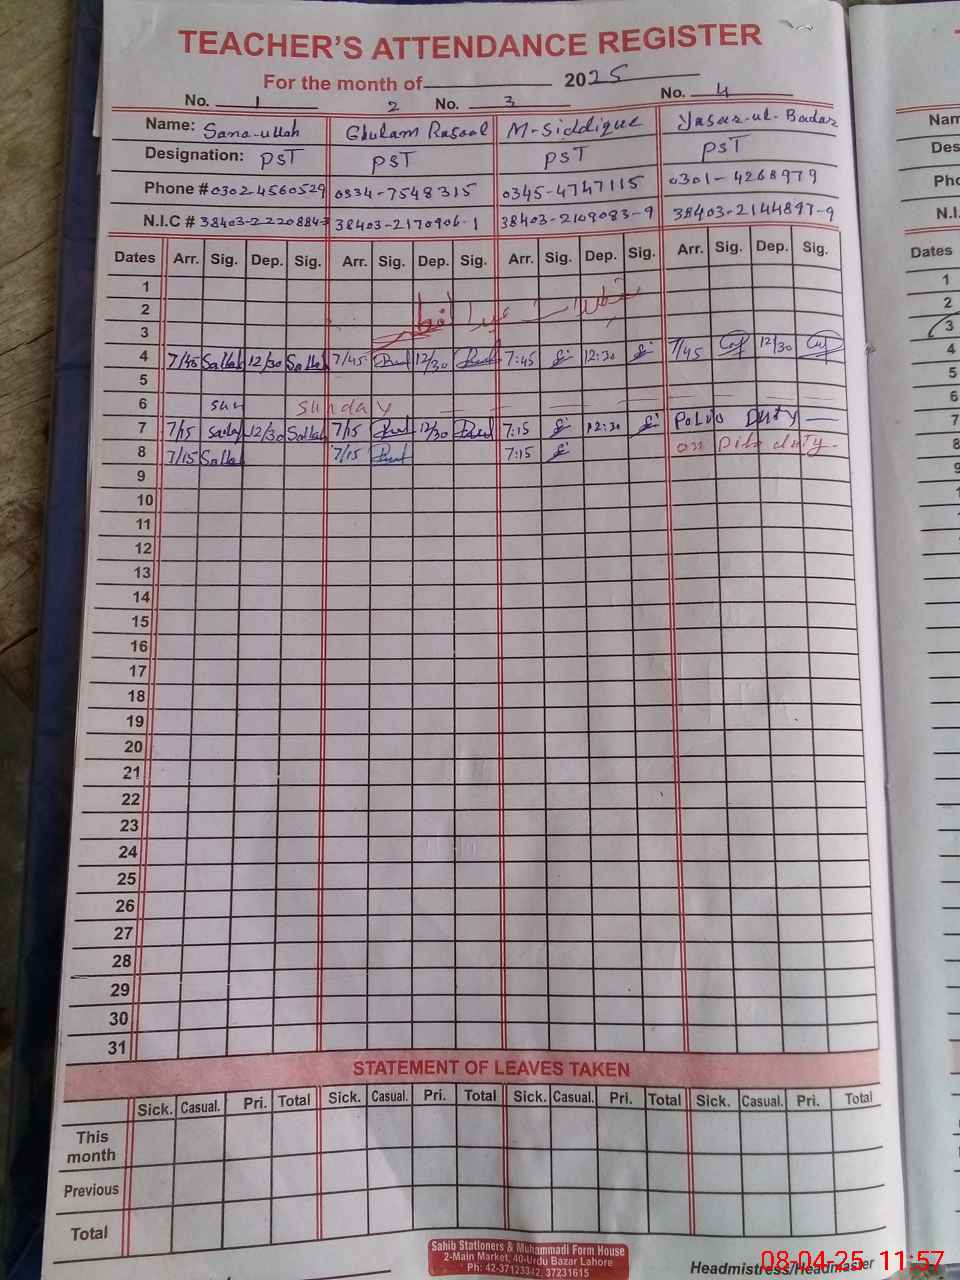 TEACHER'S ATTENDANCE REGISTER
For the month of 2025
No. 1 2 No. 3 No. 4
Name: Sana-ullah Ghulam Rasool M-Siddique Yasar-ul-Badar
Designation: PST PST PST PST
Phone # 0302 4560529 0334-7548315 0345-4747115 0301-4268979
N.I.C # 38403-2220884-3 38403-2170906-1 38403-2109083-9 38403-2144897-9
Dates Arr. Sig. Dep. Sig. Arr. Sig. Dep. Sig. Arr. Sig. Dep. Sig. Arr. Sig. Dep. Sig.
1
2 تعطیلات عید الفطر
3
4 7/45 12/30 7/45 12/30 7:45 12:30 7/45 12/30
5
6 sun sunday
7 7/15 12/30 7/15 12/30 7:15 12:30 Polio Duty
8 7/15 7/15 7:15 on duty
9
10
11
12
13
14
15
16
17
18
19
20
21
22
23
24
25
26
27
28
29
30
31
STATEMENT OF LEAVES TAKEN
Sick. Casual. Pri. Total Sick. Casual. Pri. Total Sick. Casual. Pri. Total Sick. Casual. Pri. Total
This month
Previous
Total
Sahib Stationers & Muhammadi Form House
2-Main Market, 40-Urdu Bazar Lahore
Ph: 42-37123342, 37231615
Headmistress/Headmaster
08-04-25 11:57
Dates
1
2
3
4
5
6
7
8